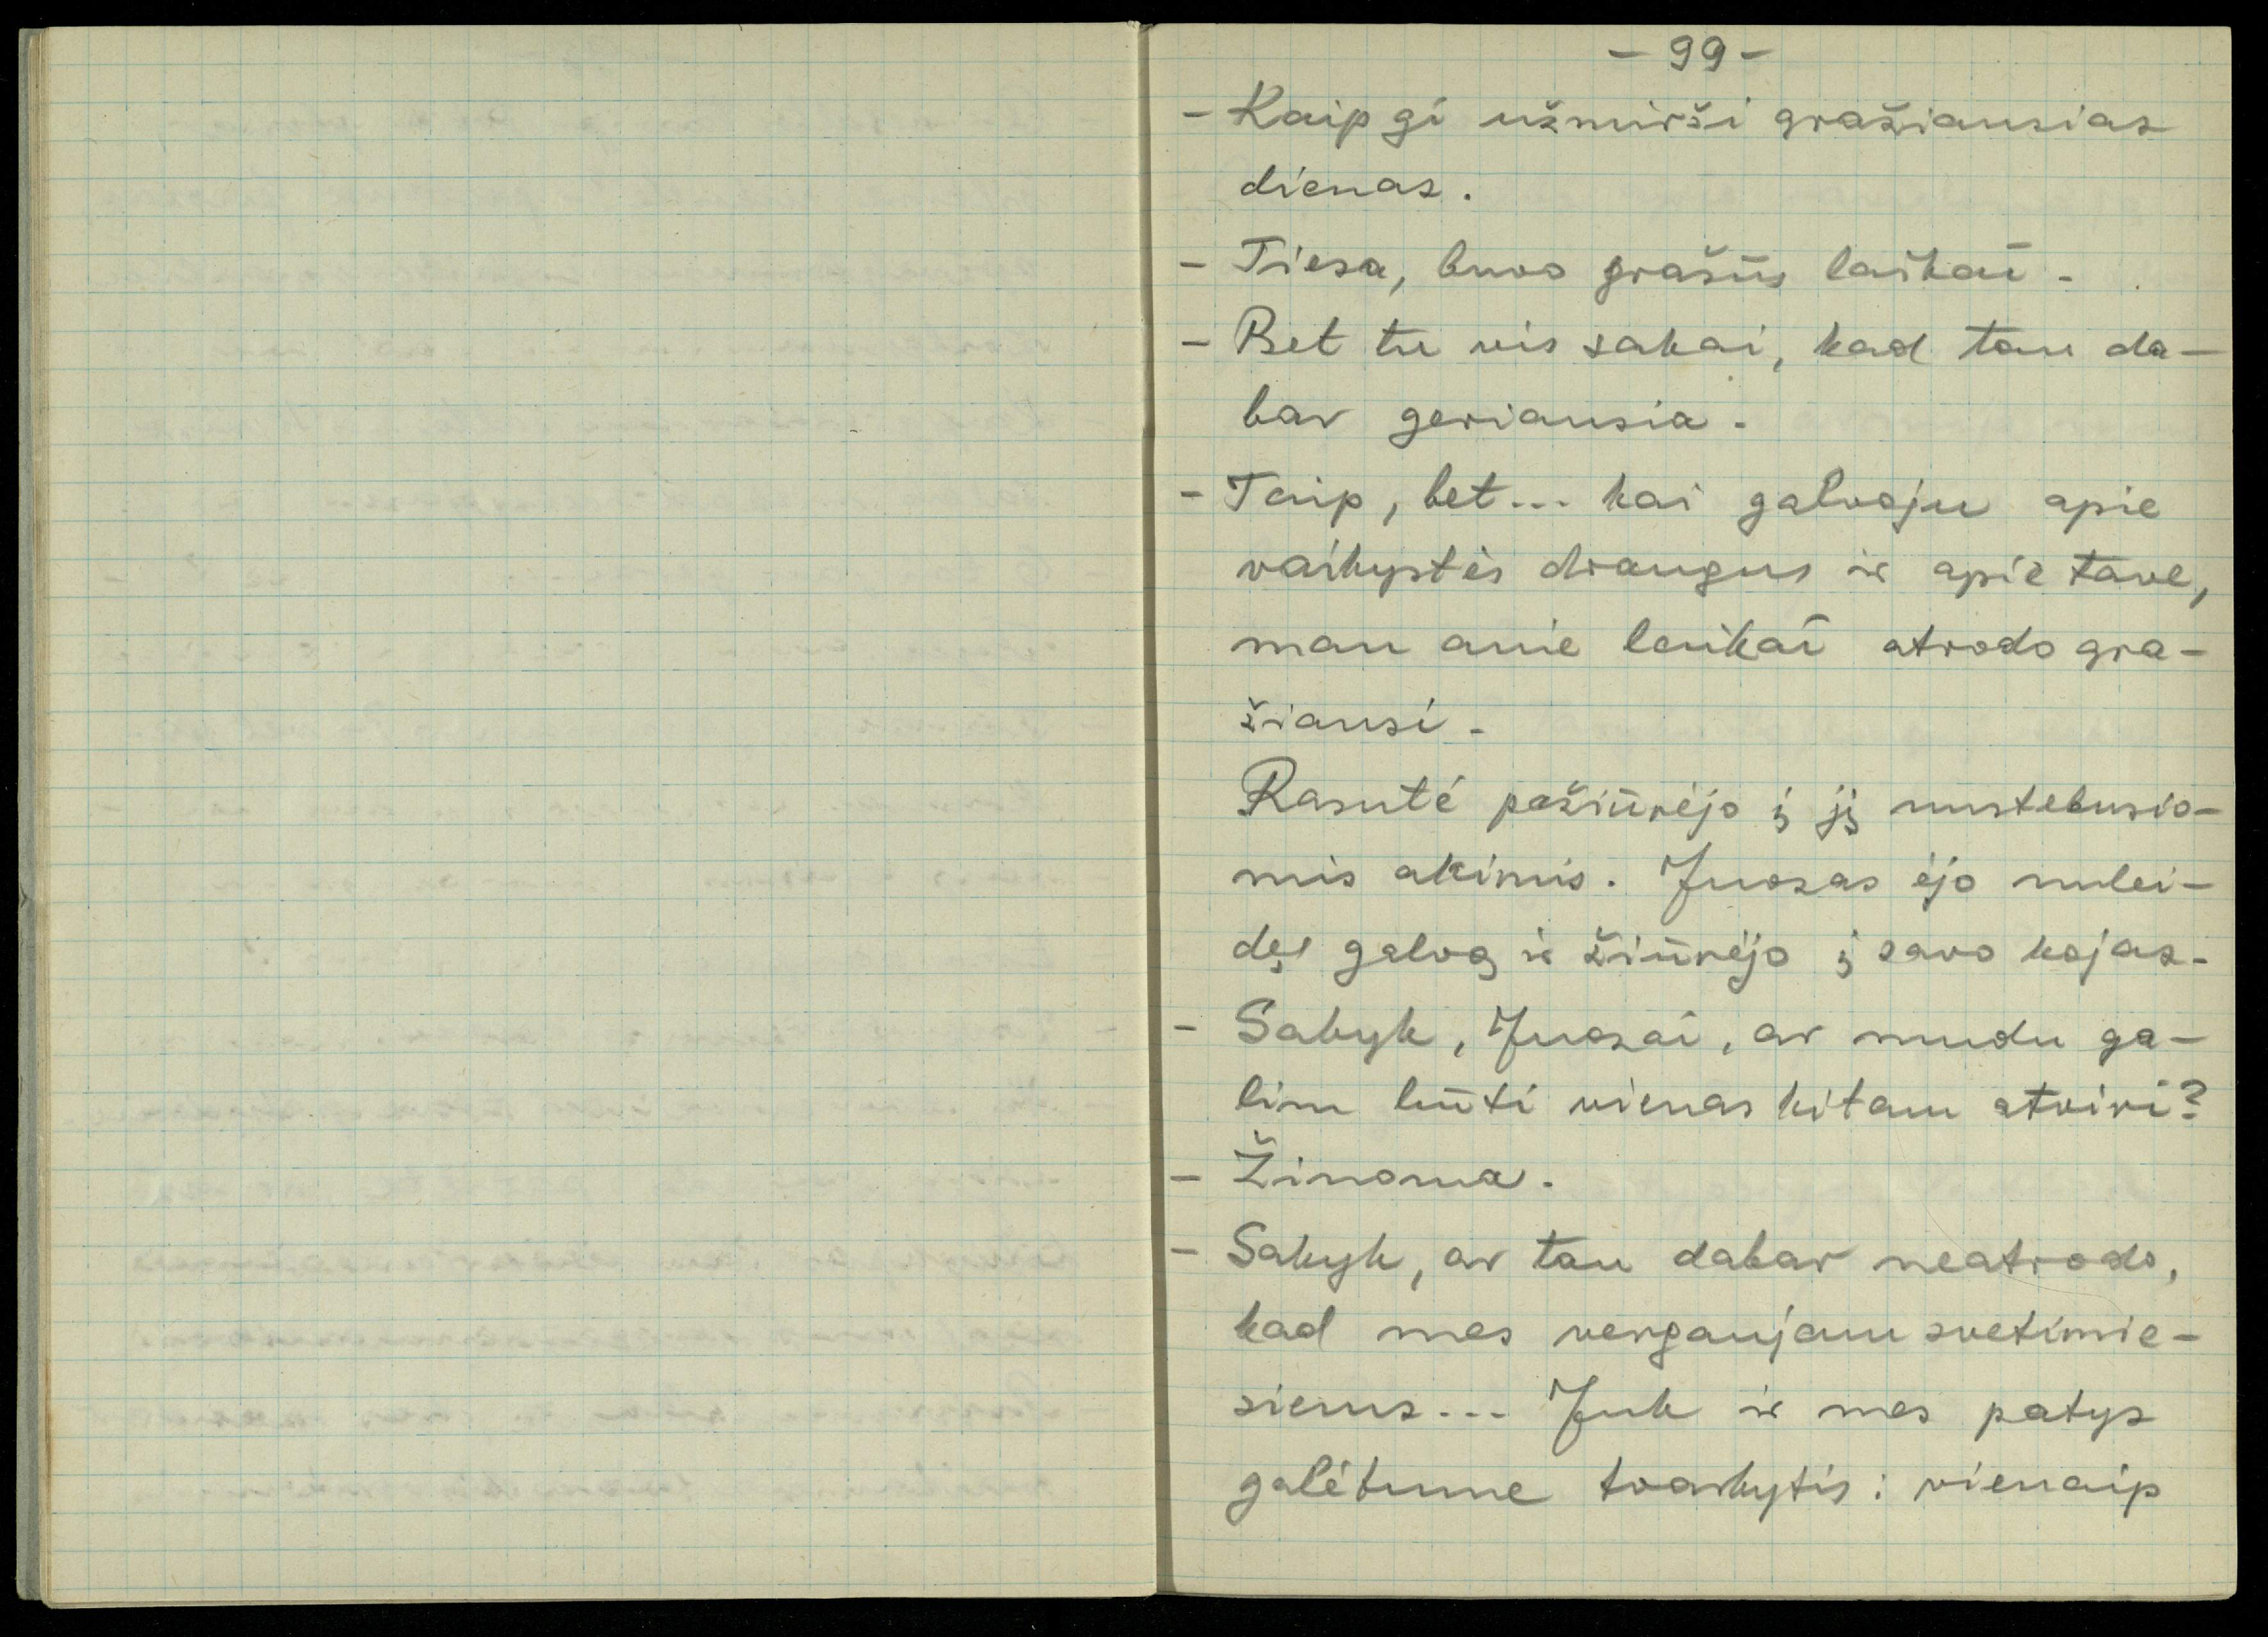 - 99 -
- Kaip gi užmirši gražiausias
dienas.
- Tiesa, buvo gražūs laikai.
- Bet tu vis sakai, kad tau da-
bar geriausia.
- Taip, bet... kai galvoju apie
vaikystės draugus ir apie tave,
man anie laikai atrodo gra-
žiausi.
Rasutė pažiūrėjo į jį nustebusio-
mis akimis. Juozas ėjo nulei-
dęs galvą ir žiūrėjo į savo kojas.
- Sakyk, Juozai, ar mudu ga-
lim būti vienas kitam atviri?
- Žinoma.
- Sakyk, ar tau dabar neatrodo,
kad mes vergaujam svetimie-
siems... Juk ir mes patys
galėtume tvarkytis: vienaip